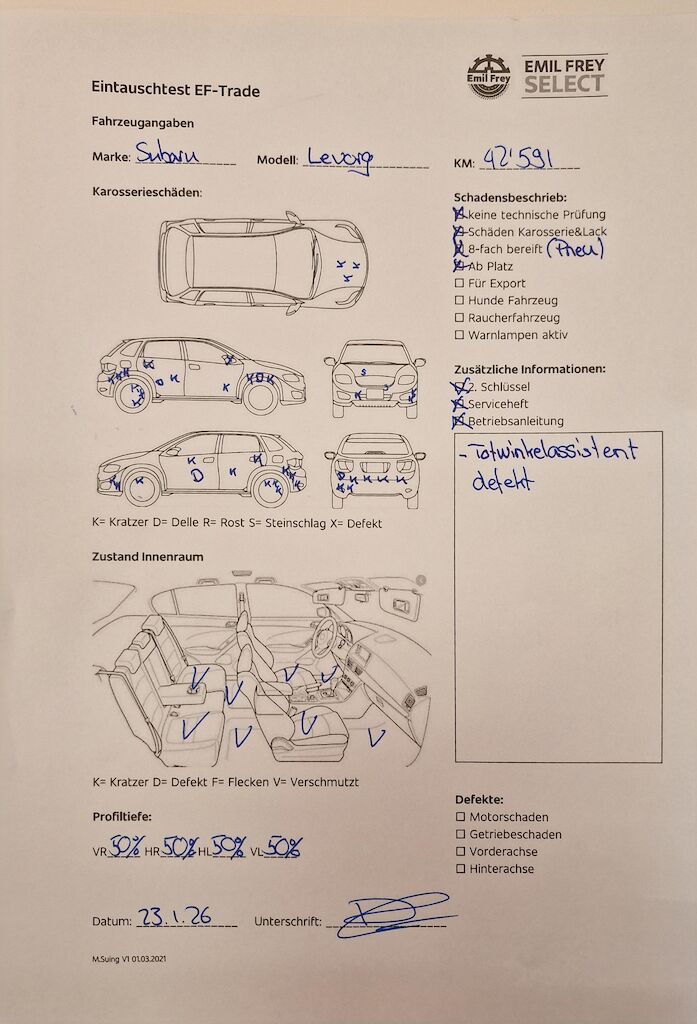 Emil Frey
EMIL FREY
SELECT
Eintauschtest EF-Trade
Fahrzeugangaben
Marke: Subaru Modell: Levorg KM: 42'591
Karosserieschäden:
K K
K
K K K K K K D K K K D K
S K K
K K K K D K K K K K K
D K K K K K K
K= Kratzer D= Delle R= Rost S= Steinschlag X= Defekt
Schadensbeschrieb:
☒ keine technische Prüfung
☒ Schäden Karosserie&Lack
☒ 8-fach bereift (Pneu)
☒ Ab Platz
☐ Für Export
☐ Hunde Fahrzeug
☐ Raucherfahrzeug
☐ Warnlampen aktiv
Zusätzliche Informationen:
☒ 2. Schlüssel
☒ Serviceheft
☒ Betriebsanleitung
- Totwinkelassistent
defekt
Zustand Innenraum
V V V V
V V V V
K= Kratzer D= Defekt F= Flecken V= Verschmutzt
Profiltiefe:
VR 50% HR 50% HL 50% VL 50%
Defekte:
☐ Motorschaden
☐ Getriebeschaden
☐ Vorderachse
☐ Hinterachse
Datum: 23.1.26 Unterschrift:
M.Suing V1 01.03.2021